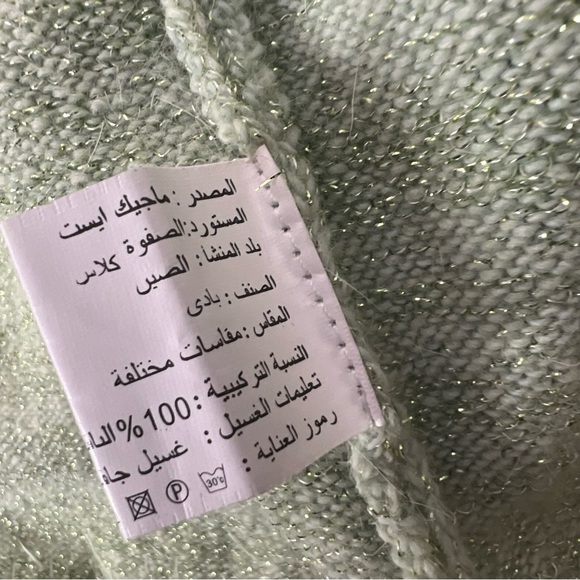 المصدر : ماجيك ايست
المستورد: الصفوة كلاس
بلد المنشا : الصين
الصنف : بادى
المقاس : مقاسات مختلفة
النسبة التركيبية : 100%
تعليمات الغسيل : غسيل جاف
رموز العناية :
30°c
P